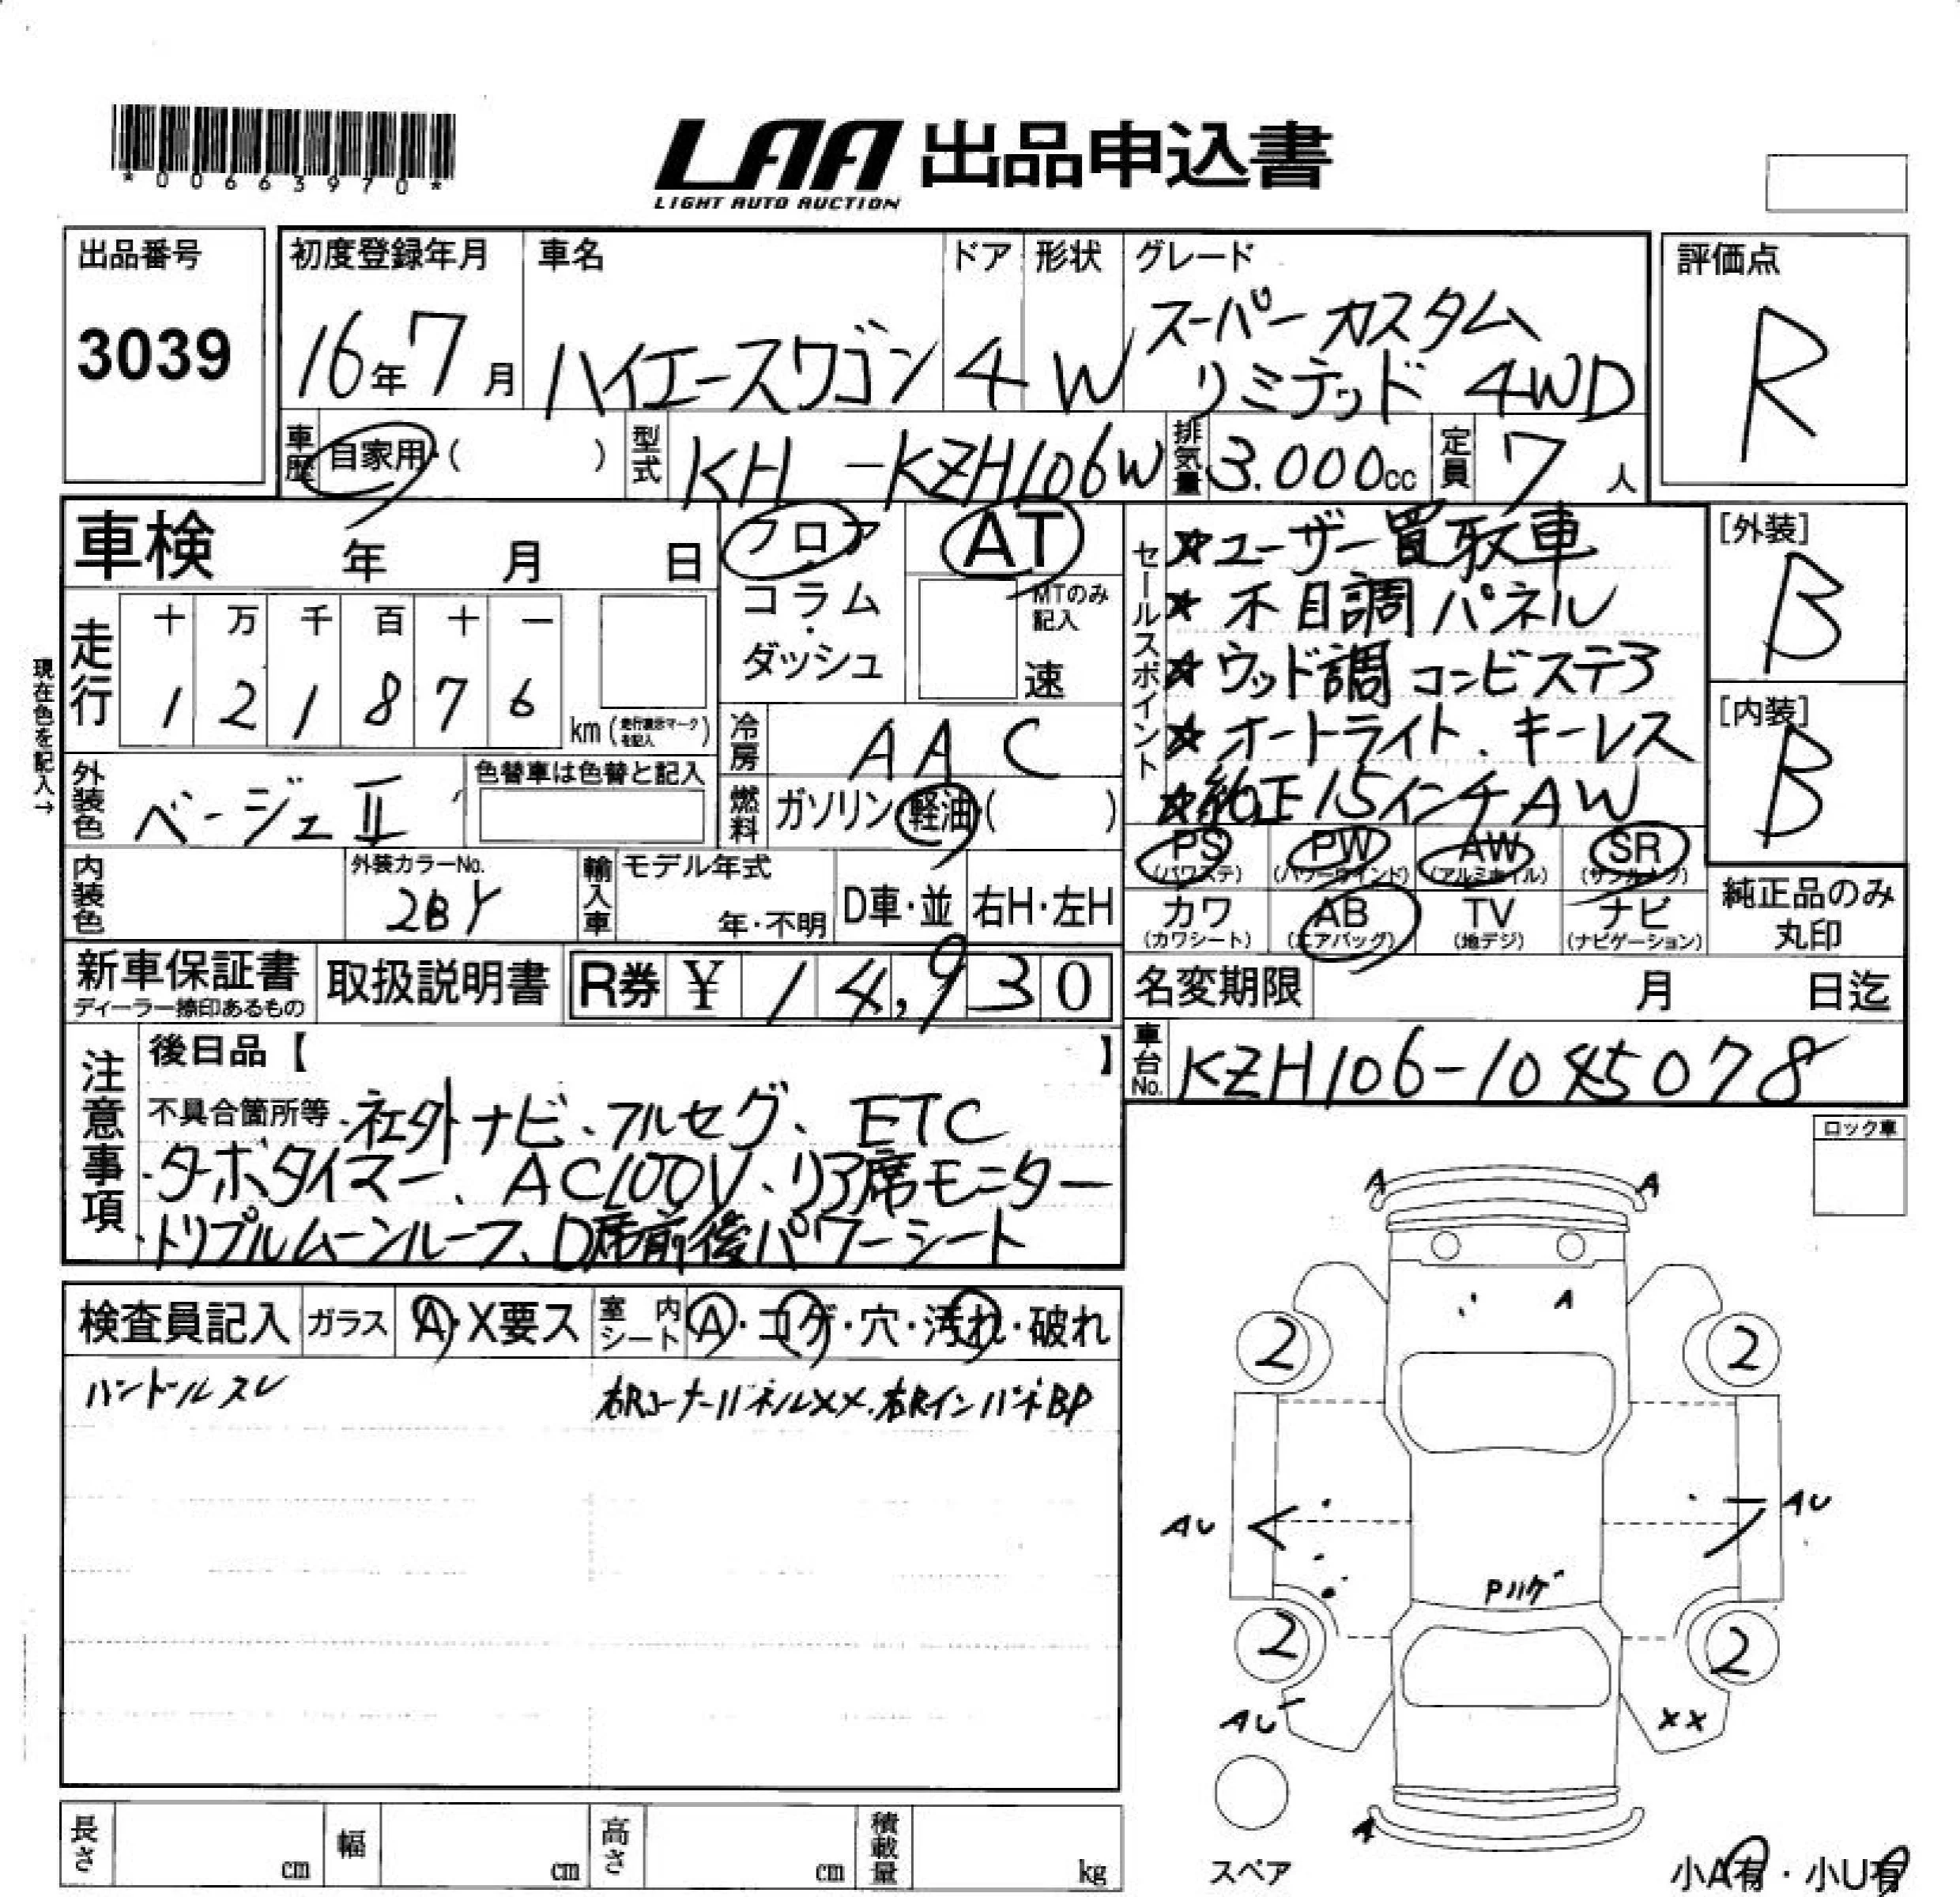 *00663970*
LAA 出品申込書
LIGHT AUTO AUCTION
出品番号
3039
初度登録年月
16年7月
車名
ハイエースワゴン
ドア
4
形状
W
グレード
スーパーカスタム
リミテッド 4WD
評価点
R
車歴
自家用・( )
型式
KH-KZH106W
排気量
3.000cc
定員
7人
車検 年 月 日
フロア
コラム
・
ダッシュ
AT
MTのみ
記入
速
セールスポイント
★ユーザー買取車
★木目調パネル
★ウッド調コンビステア
★オートライト、キーレス
★純正15インチAW
[外装]
B
[内装]
B
現在色を記入→
走行
十 万 千 百 十 一
1 2 1 8 7 6
km(走行表示マークを記入)
冷房
AAC
外装色
ベージュⅡ
色替車は色替と記入
燃料
ガソリン・軽油・( )
PS
(パワステ)
PW
(パワーウインド)
AW
(アルミホイル)
SR
(サンルーフ)
内装色
外装カラーNo.
2BY
輸入車
モデル年式
年・不明
D車・並
右H・左H
カワ
(カワシート)
AB
(エアバッグ)
TV
(地デジ)
ナビ
(ナビゲーション)
純正品のみ
丸印
新車保証書
ディーラー捺印あるもの
取扱説明書
R券 ¥ 14,930
名変期限 月 日迄
注意事項
後日品【 】
車台No.
KZH106-1045078
不具合箇所等・社外ナビ、フルセグ、ETC
・ターボタイマー、AC100V、リア席モニター
・トリプルムーンルーフ、D席前後パワーシート
ロック車
検査員記入
ガラス
A・X要ス
室内シート
A・コゲ・穴・汚れ・破れ
ハンドルスレ
右RコーナーパネルXX.右RインパネBP
A A
A
2 2
AU AU
Pハゲ
2 2
AU XX
A
スペア
小A有・小U有
長さ cm
幅 cm
高さ cm
積載量 kg